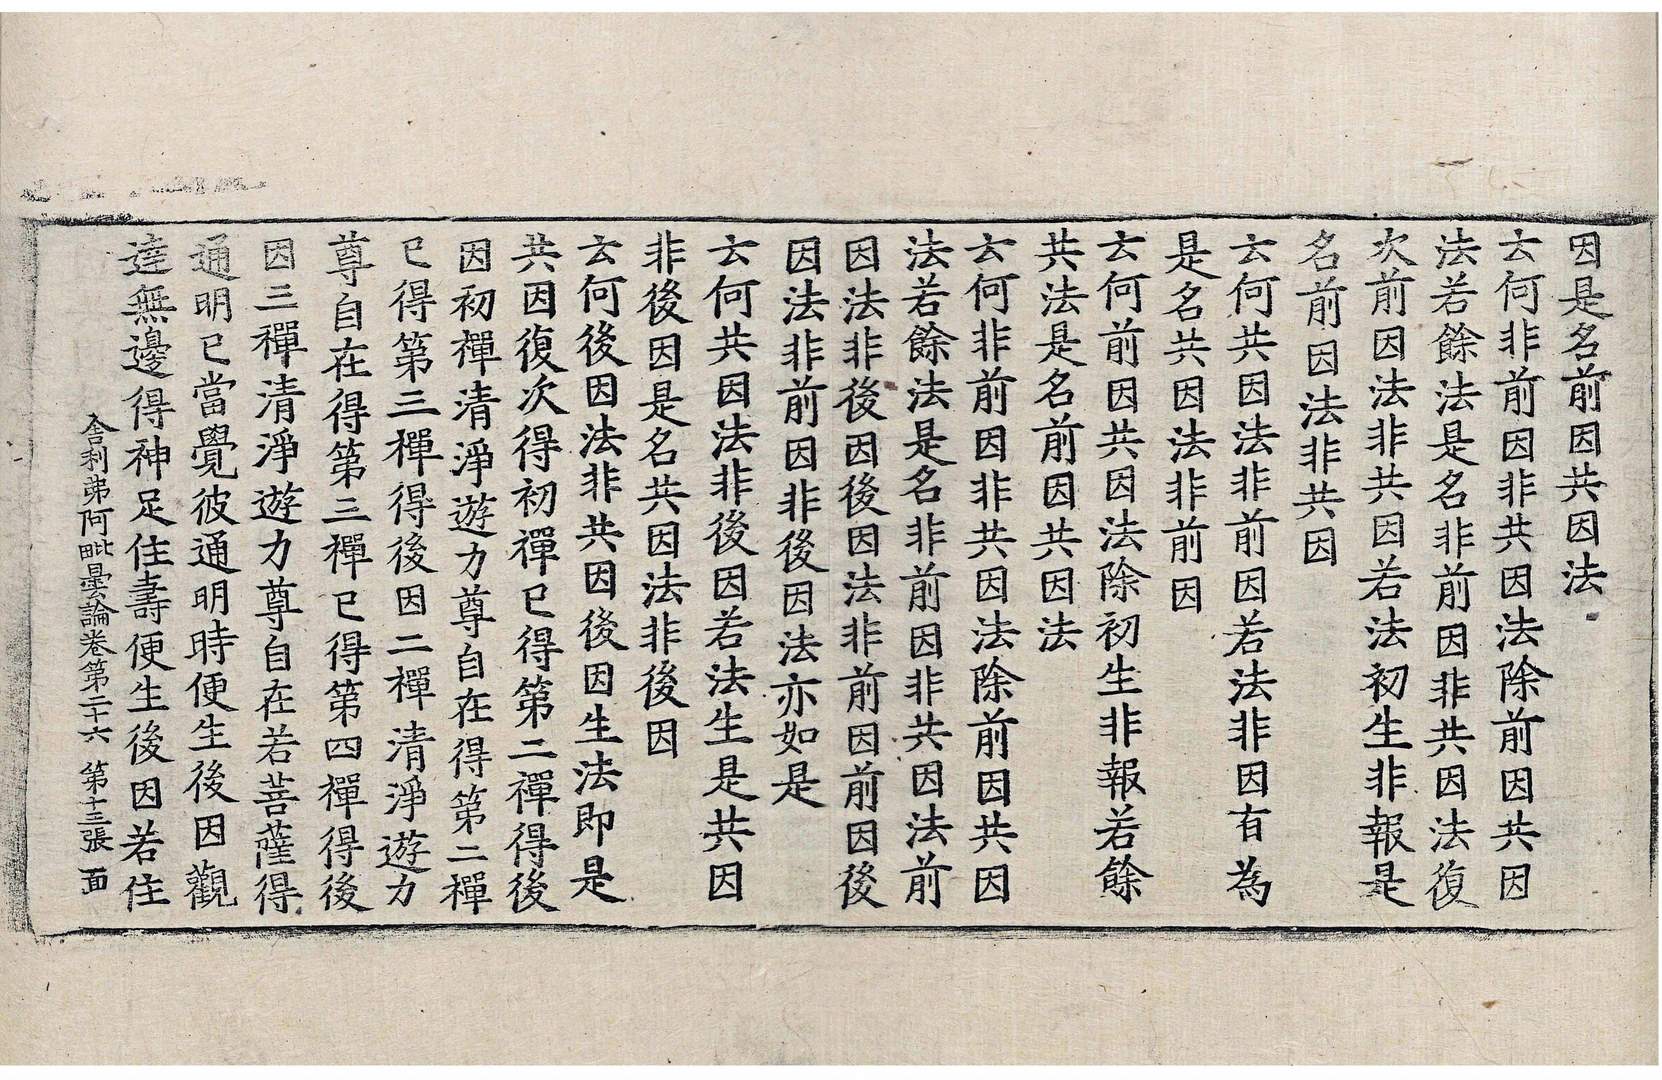 因是名前因共因法
云何非前因非共因法除前因共因
法若餘法是名非前因非共因法復
次前因法非共因若法初生非報是
名前因法非共因
云何共因法非前因若法非因有為
是名共因法非前因
云何前因共因法除初生非報若餘
共法是名前因共因法
云何非前因非共因法除前因共因
法若餘法是名非前因非共因法前
因法非後因後因法非前因前因後
因法非前因非後因法亦如是
云何共因法非後因若法生是共因
非後因是名共因法非後因
云何後因法非共因後因生法即是
共因復次得初禪已得第二禪得後
因初禪清淨遊力尊自在得第二禪
已得第三禪得後因二禪清淨遊力
尊自在得第三禪已得第四禪得後
因三禪清淨遊力尊自在若菩薩得
通明已當覺彼通明時便生後因觀
達無邊得神足住壽便生後因若住
舍利弗阿毗曇論卷第二十六 第十三張 面